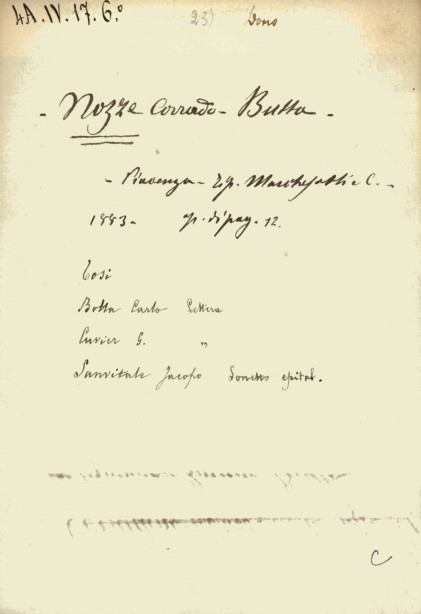 4A.IV.17.6.° 23) Dono
- Nozze Corrado - Butta -
- Piacenza - Tip. Marchesotti e C. -
1883 - op. di pag. 12.
Tosi
Botta Carlo Lettera
Cuvier G. "
Sanvitale Jacopo Sonetto epital.
C